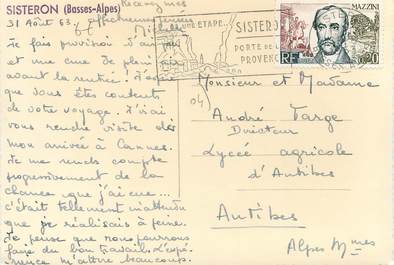 SISTERON (Basses-Alpes)
31 Août 63.
Je fais provision d'air pur
et une cure de plein air
avant la rentrée! J'espère
que vous êtes contents
de votre voyage. J'irai
vous rendre visite dès
mon arrivée à Cannes.
Je me rends compte
progressivement de la
chance que j'ai eue...
c'était tellement inattendu
que je réalisais à peine.
Je pense que nous pourrons
faire du bon travail. L'expé-
rience m'attire beaucoup.
UNE ETAPE...
SISTERON
PORTE DE LA
PROVENCE
MAZZINI
RF
0,20
Monsieur et Madame
André Targe
Directeur
Lycée agricole
d'Antibes
Antibes
Alpes Mmes